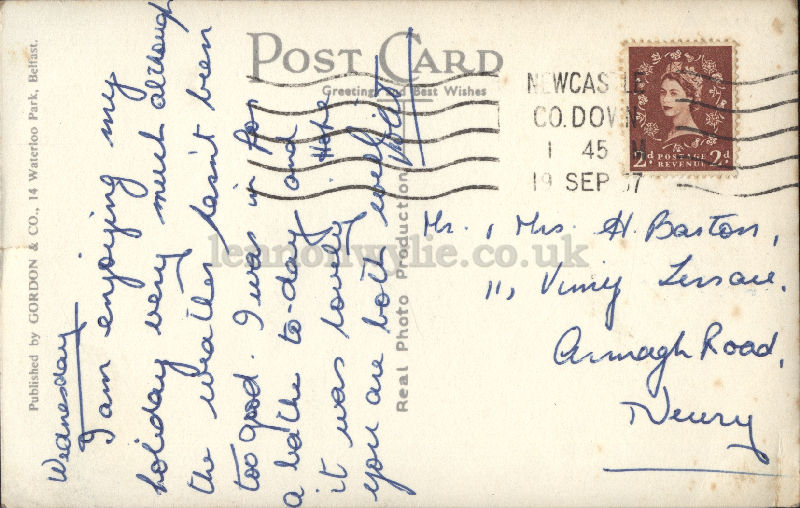 Published by GORDON & CO., 14 Waterloo Park, Belfast.
POST CARD
Greetings and Best Wishes
Real Photo Production
Wednesday
I am enjoying my
holiday very much although
the weather hasn't been
too good. I was in for
a bathe to-day and
it was lovely Hope
you are both well
NEWCASTLE
CO. DOWN
1 45 M
19 SEP 57
2d POSTAGE REVENUE 2d
Mr. , Mrs H. Barton,
11, Vimy Terrace.
Armagh Road,
Newry
lennonwylie.co.uk